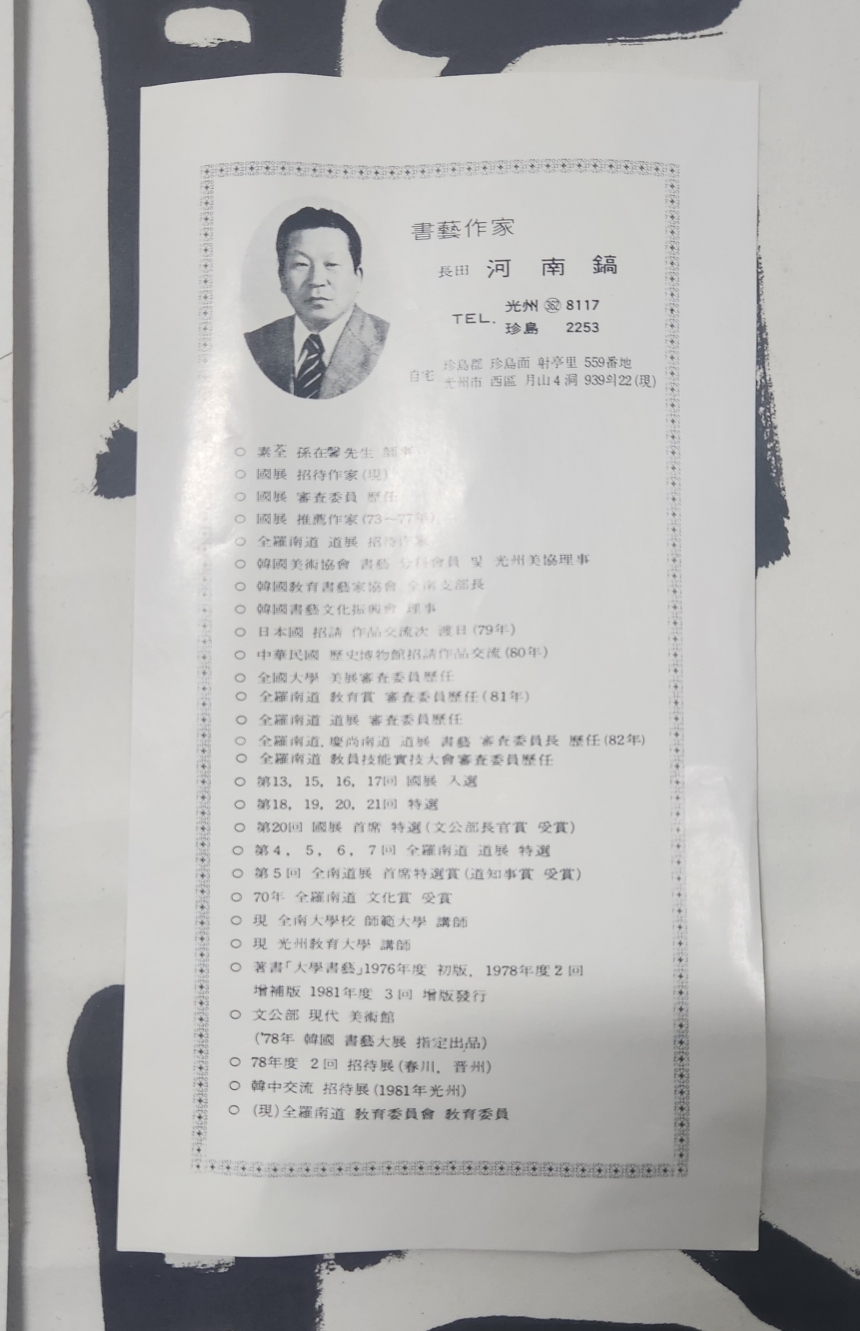 書藝作家
長田 河南鎬
TEL. 光州 ㊅ 8117
珍島 2253
自宅 珍島郡 珍島面 射亭里 559番地
光州市 西區 月山4洞 939의22(現)
○ 素荃 孫在馨先生 師事
○ 國展 招待作家(現)
○ 國展 審査委員 歷任
○ 國展 推薦作家(73—77年)
○ 全羅南道 道展 招待作家
○ 韓國美術協會 書藝 分科會員 및 光州美協理事
○ 韓國敎育書藝家協會 全南支部長
○ 韓國書藝文化振興會 理事
○ 日本國 招請 作品交流次 渡日(79年)
○ 中華民國 歷史博物館招請作品交流(80年)
○ 全國大學 美展審査委員歷任
○ 全羅南道 敎育賞 審査委員歷任(81年)
○ 全羅南道 道展 審査委員歷任
○ 全羅南道, 慶尚南道 道展 書藝 審査委員長 歷任(82年)
○ 全羅南道 敎員技能實技大會審査委員歷任
○ 第13, 15, 16, 17回 國展 入選
○ 第18, 19, 20, 21回 特選
○ 第20回 國展 首席 特選(文公部長官賞 受賞)
○ 第4, 5, 6, 7回 全羅南道 道展 特選
○ 第5回 全南道展 首席特選賞(道知事賞 受賞)
○ 70年 全羅南道 文化賞 受賞
○ 現 全南大學校 師範大學 講師
○ 現 光州敎育大學 講師
○ 著書「大學書藝」1976年度 初版, 1978年度 2回
增補版 1981年度 3回 增版發行
○ 文公部 現代 美術館
('78年 韓國 書藝大展 指定出品)
○ 78年度 2回 招待展(春川, 晋州)
○ 韓中交流 招待展(1981年光州)
○ (現)全羅南道 敎育委員會 敎育委員